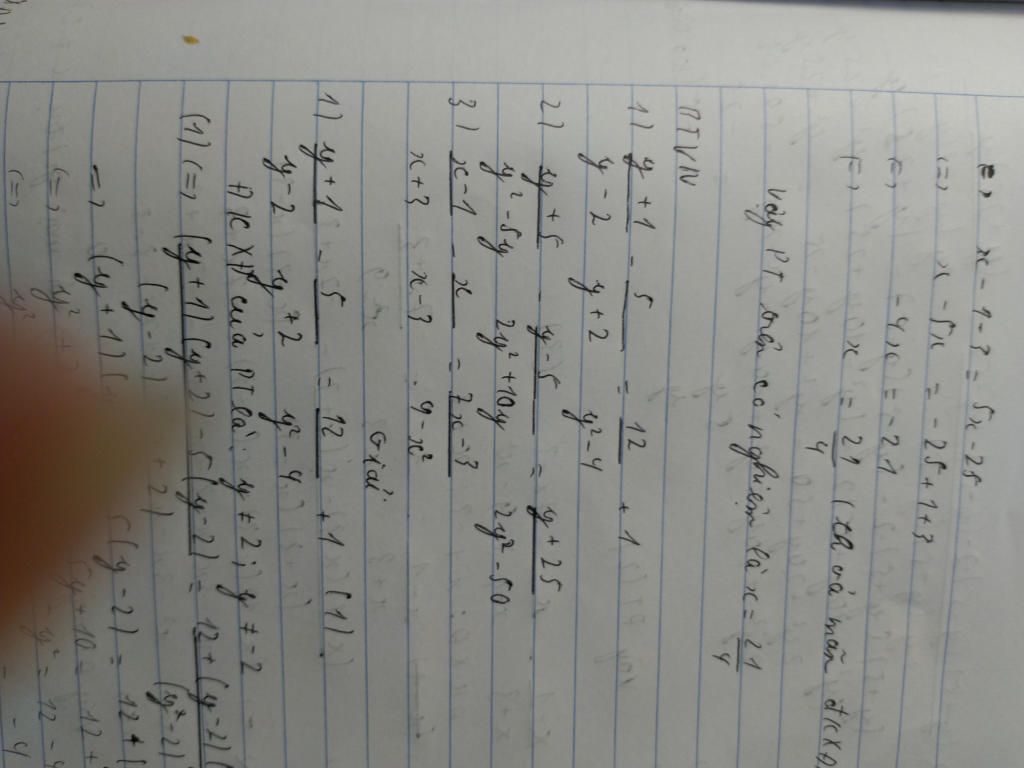 <=> x - 1 - 3 = 5x - 25
<=> x - 5x = - 25 + 1 + 3
<=> - 4x = - 21
<=> x = 21/4 (thoả mãn ĐKXĐ)
Vậy PT có nghiệm là x = 21/4
BTVN
1) (y + 1)/(y - 2) - 5/(y + 2) = 12/(y² - 4) + 1
2) (y + 5)/(y² - 5y) - (y - 5)/(2y² + 10y) = (y + 25)/(2y² - 50)
3) (x - 1)/(x + 3) - x/(x - 3) = (7x - 3)/(9 - x²)
Giải
1) (y + 1)/(y - 2) - 5/(y + 2) = 12/(y² - 4) + 1 (1)
ĐKXĐ của PT là: y ≠ 2; y ≠ -2
(1) <=> (y + 1)(y + 2) - 5(y - 2) = 12 + (y - 2)(
(y - 2) + 2) (y² - 2)
=> (y + 1)( 5(y - 2) = 12 + (
<=> y² + 5y + 10 = 12 +
<=> y² - y² = 12 - 4
- 4